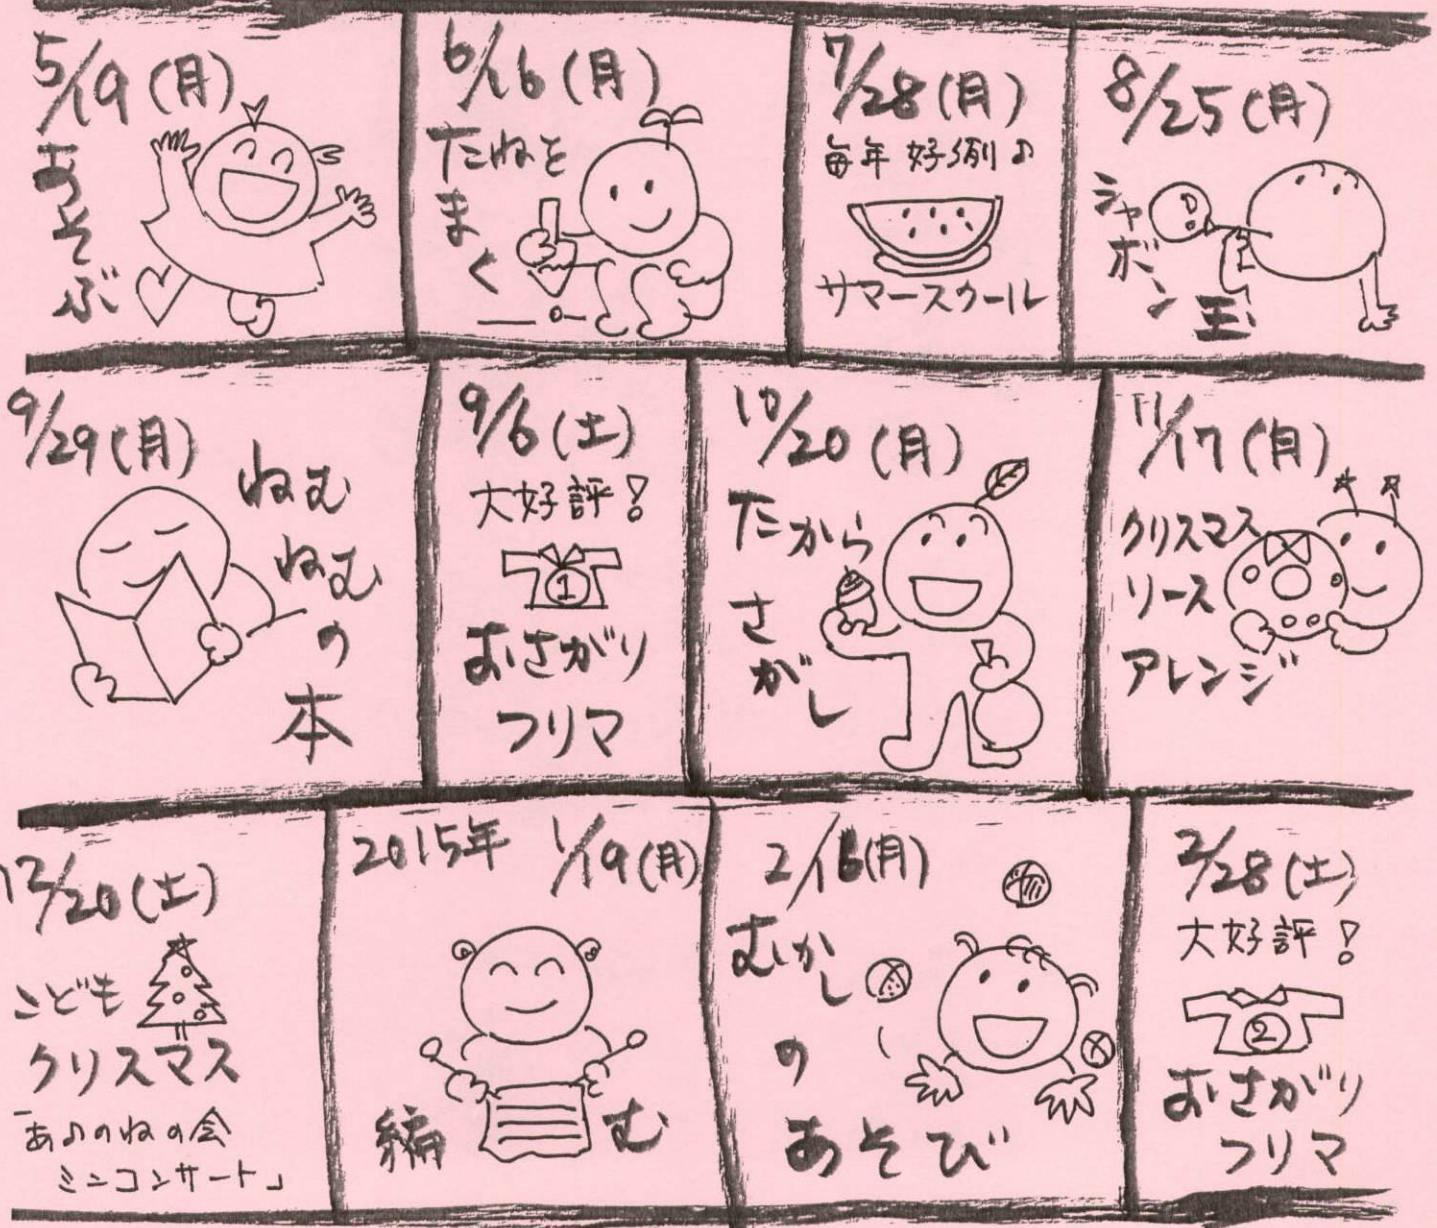 5/19(月)
あっそぶ
6/16(月)
たねを
まく
7/28(月)
毎年好例♪
サマースクール
8/25(月)
シャボン玉
9/29(月)
ねむ
ねむ
の
本
9/6(土)
大好評!
1
おさがり
フリマ
10/20(月)
たから
さ
がし
11/17(月)
クリスマス
リース
アレンジ
12/20(土)
こども
クリスマス
「あ♪のねの会
ミニコンサート」
2015年 1/19(月)
編む
2/16(月)
むかし
の
あそび
2/28(土)
大好評!
2
おさがり
フリマ